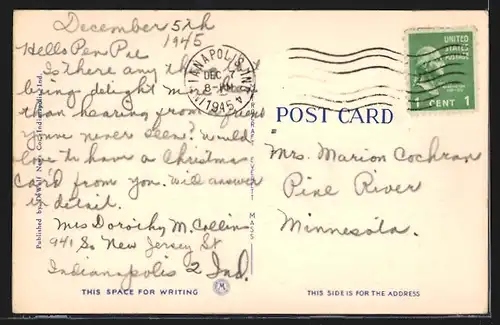 December 5th
1945
Hello Pen Pal
Is there any thing that
being delight more
than hearing from friend
you've never seen? Would
love to have a Christmas
card from you. Will answer
in detail.
Mrs Dorothy M. Collins
941 So New Jersey St
Indianapolis 2 Ind.
THIS SPACE FOR WRITING
INDIANAPOLIS, IND.
DEC 7
8-PM
1945
UNITED
STATES
POSTAGE
1 CENT 1
POST CARD
Mrs. Marion Cochran
Pine River
Minnesota.
THIS SIDE IS FOR THE ADDRESS